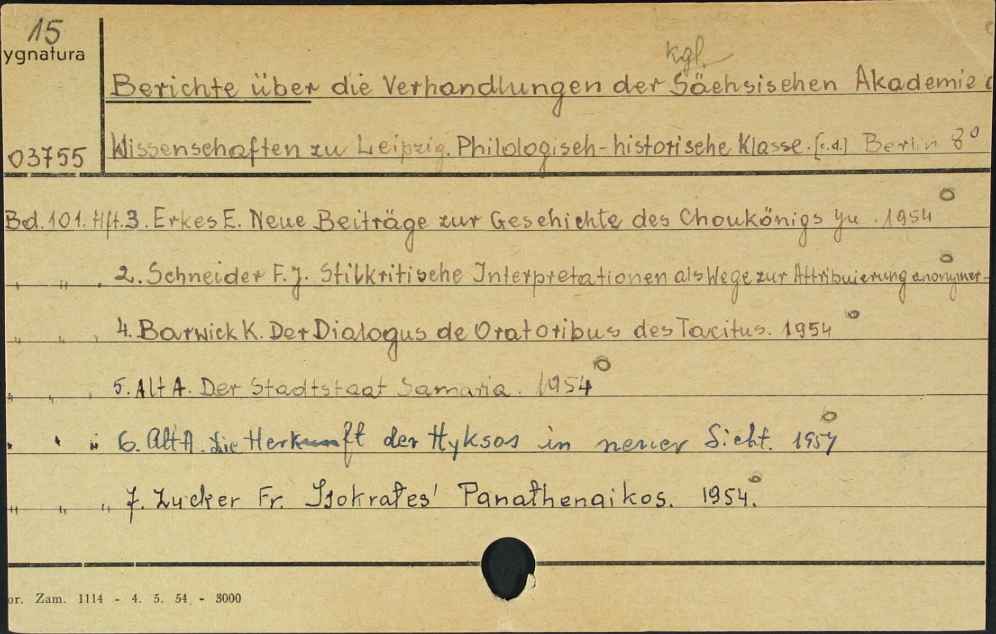 15
ygnatura
kgl.
Berichte über die Verhandlungen der Säehsisehen Akademie d
03755
Wissensehaften zu Leipzig. Philologiseh-historisehe Klasse. [c.d.] Berlin 8°
Bd. 101. Hft. 3. Erkes E. Neue Beiträge zur Gesehichte des Choukönigs Yu. 1954
" " . 2. Schneider F.J. Stilkritisehe Interpretationen als Wege zur Attribuierung anonymer-
" " " 4. Barwick K. Der Dialogus de Oratoribus des Tacitus. 1954
" " " 5. Alt A. Der Stadtstaat Samaria. 1954
" " " 6. Alt A. Die Herkunft der Hyksos in neuer Sicht. 1954
" " " 7. Zucker Fr. Isokrates' Panathenaikos. 1954.
or. Zam. 1114 - 4. 5. 54. - 3000